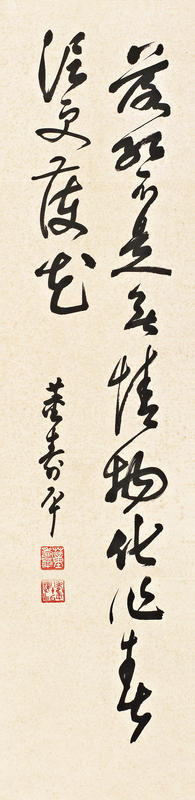 落紅不是無情物化作春
泥更護花
董壽平